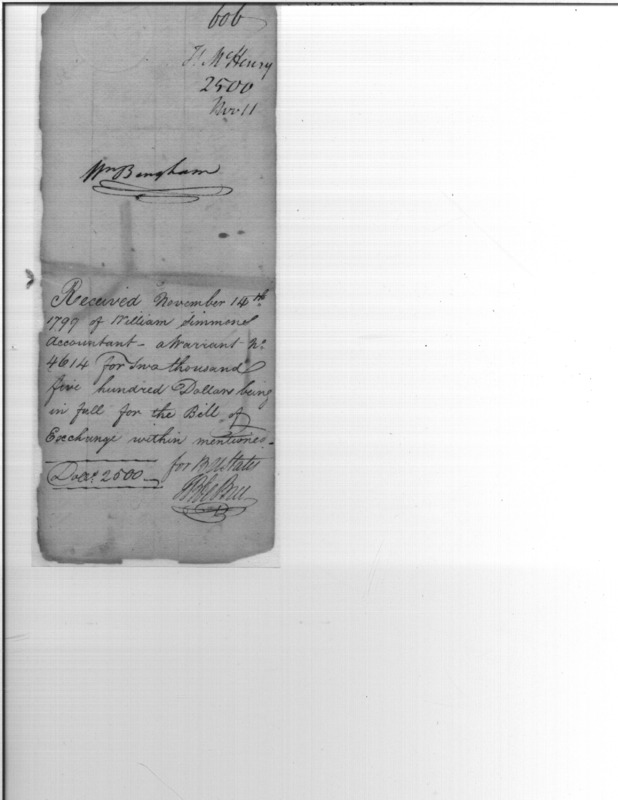 606
Js McHenry
2500
Nov 11
Wm Bingham
Received November 14th
1797 of William Simmons
Accountant - a Warrant No
4614 for two thousand
five hundred Dollars being
in full for the Bill of
Exchange within mentioned -
for B U States
Dolls. 2500